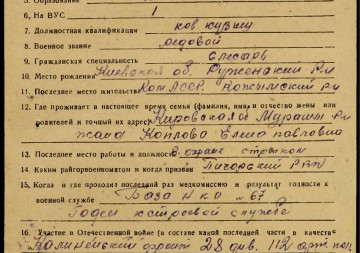 5. Образование
6. На ВУС 1
7. Должностная квалификация
8. Военное звание рядовой
9. Гражданская специальность слесарь
10. Место рождения Киевская об. Ружинский р-н
11. Последнее место жительства Коми АССР. Кожвинский р-н
12. Где проживает в настоящее время семья (фамилия, имя и отчество жены или
родителей и точный их адрес) Кировская Мураши
жена Козлова Елена Павловна
13. Последнее место работы и должность В охране стрелком
14. Каким райгорвоенкоматом и когда призван Печорский РВК
15. Когда и где проходил последний раз медкомиссию и результат годности к
военной службе База НКО № 67
Годен к строевой службе
16. Участие в Отечественной войне (в составе какой последней части в качестве
Калининский фронт 28 див. 112 арт. пол.